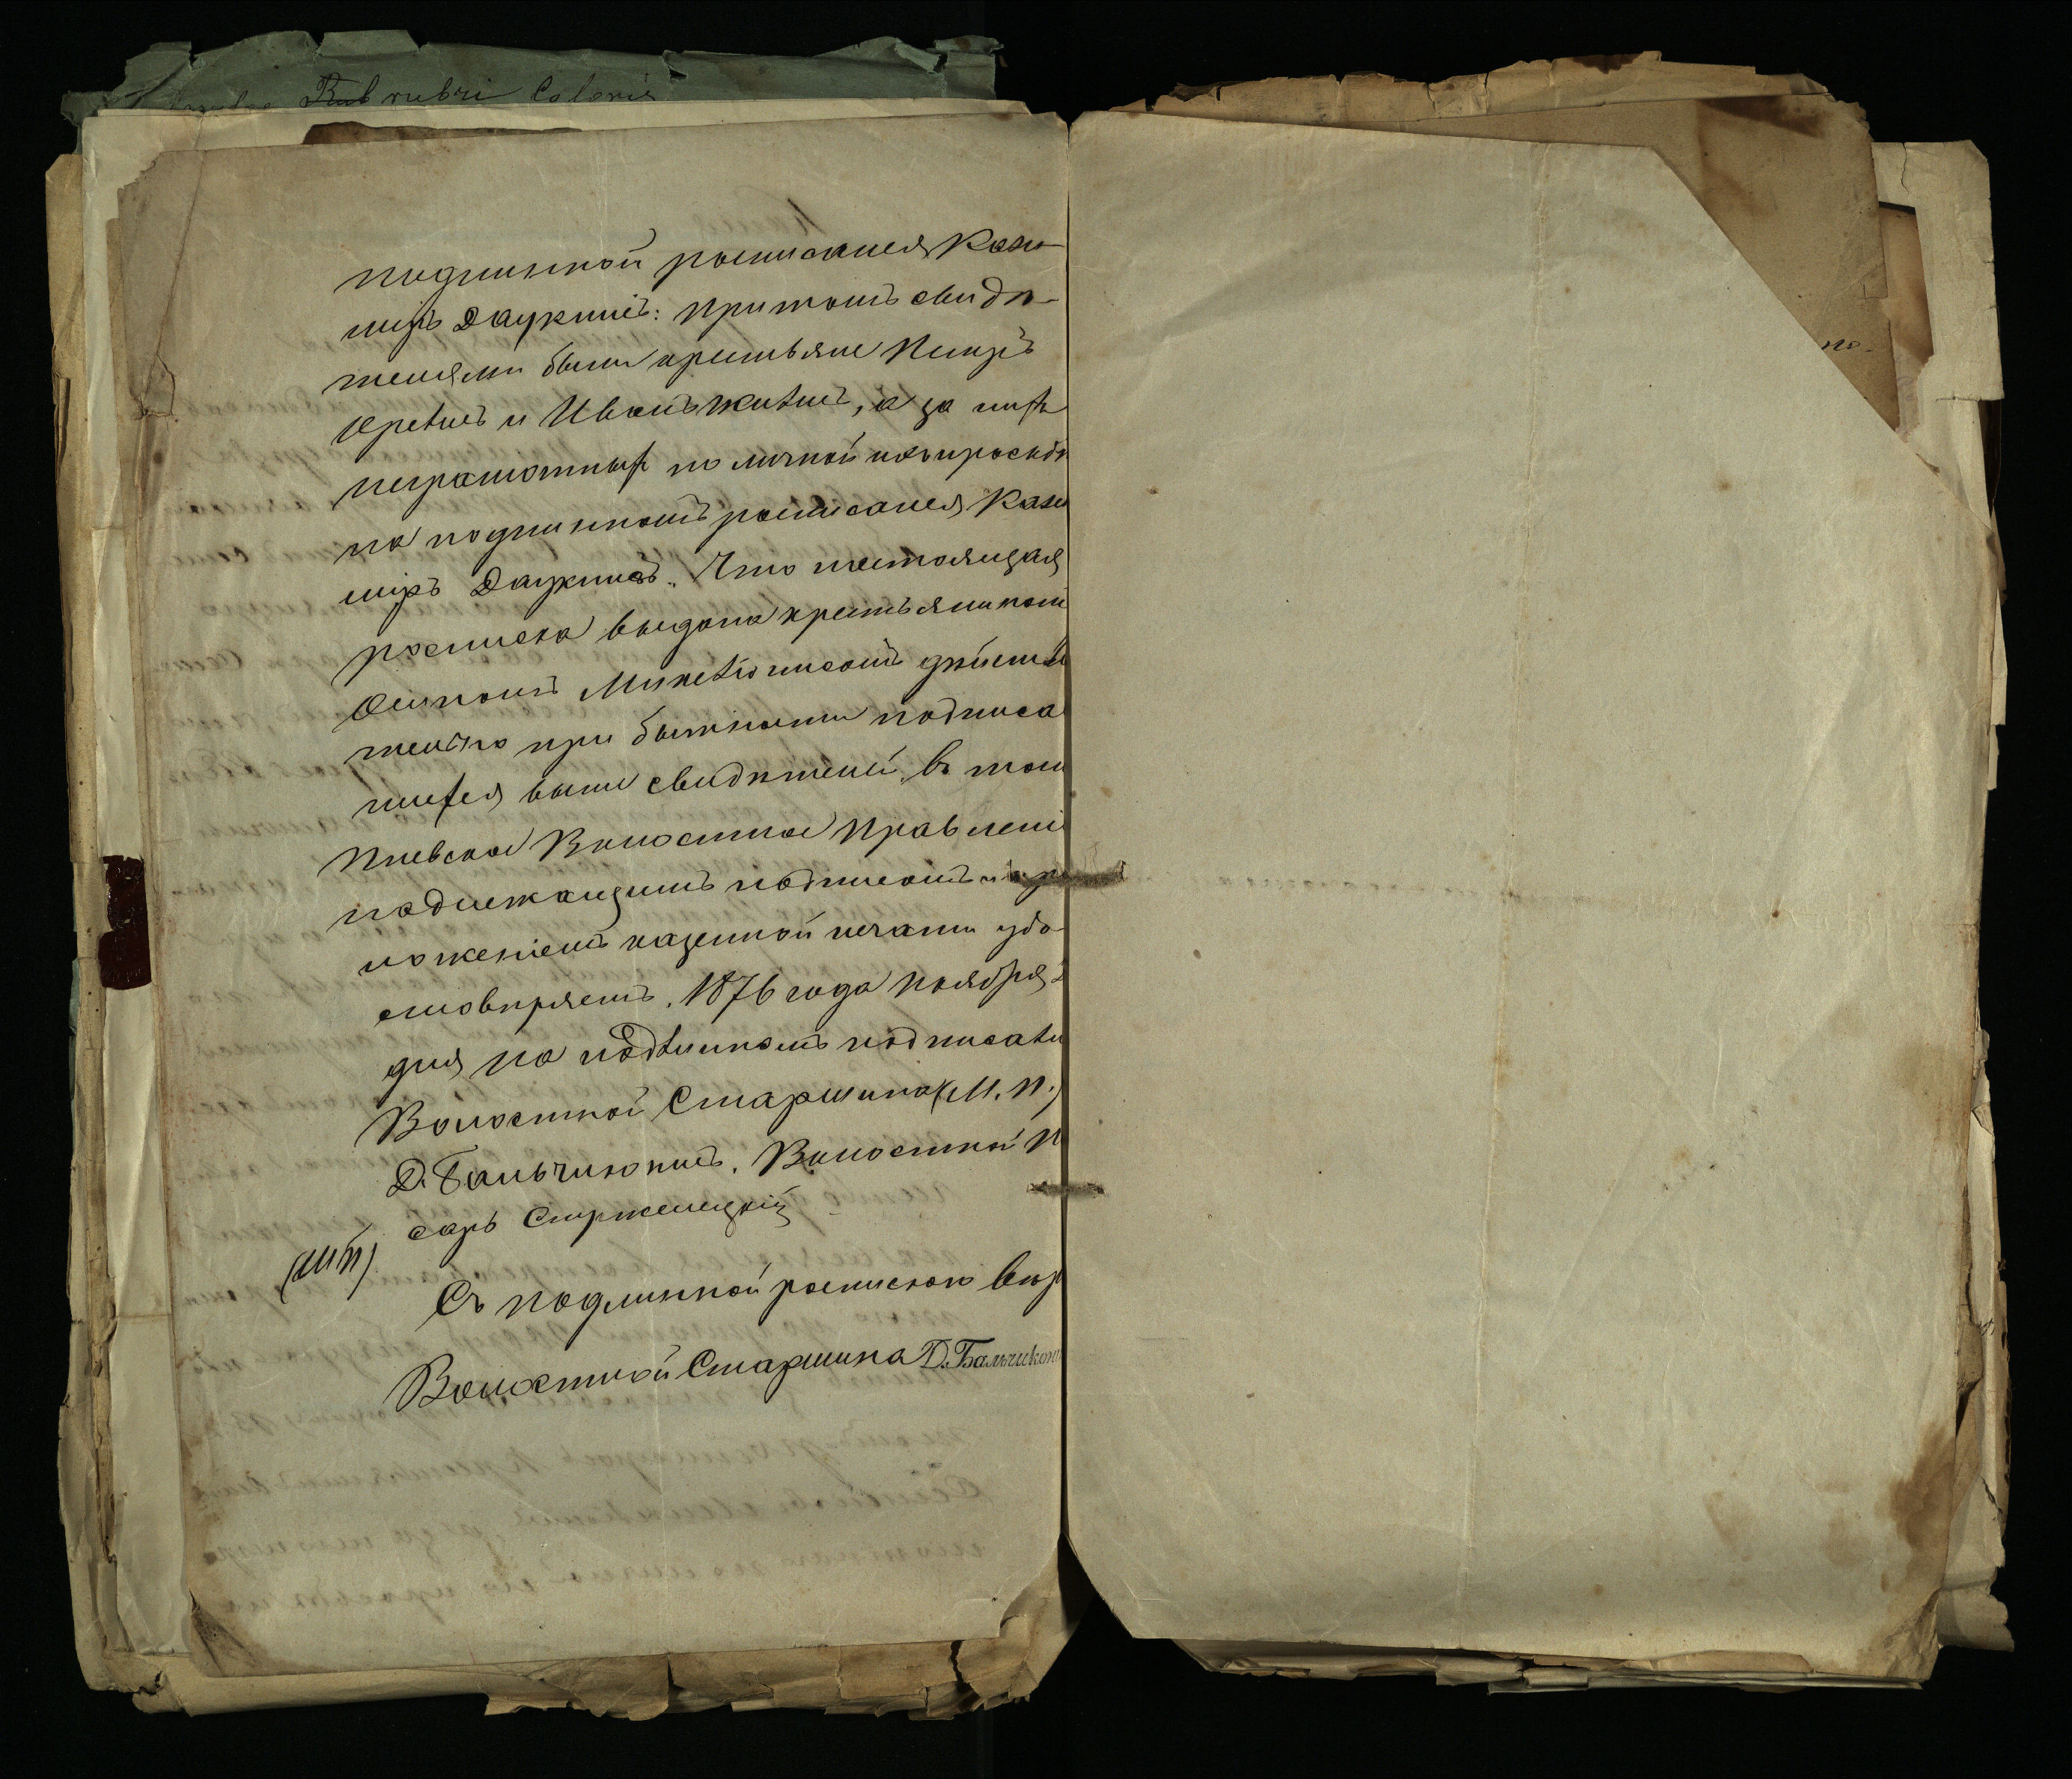 Rub rubri Coloris
подлинной росписался Кази-
миръ Даукшисъ: при томъ свидѣ-
телями были крестьяне Петръ
и Иванъ а за нихъ
неграмотныхъ по личной ихъ просьбѣ
на подлинномъ росписался Кази
миръ Даукшисъ„ Что настоящая
росписка выдана крестьяниномъ
Осипомъ дѣйстви
тельно при бытности подписа
шихся выше свидѣтелей, въ томъ
Волостное Правленіе
надлежащимъ подписомъ и при
ложеніемъ казенной печати удо
стовѣряетъ. 1876 года Ноября 2
дня, на подлинномъ подписали
Волостной Старшина (М.П.)
Д. Бальчиконисъ. Волостной Пи
сарь Стржелецкій
(МП)
Съ подлинной роспискою вѣр
Волостной Старшина Д. Бальчикони
по-